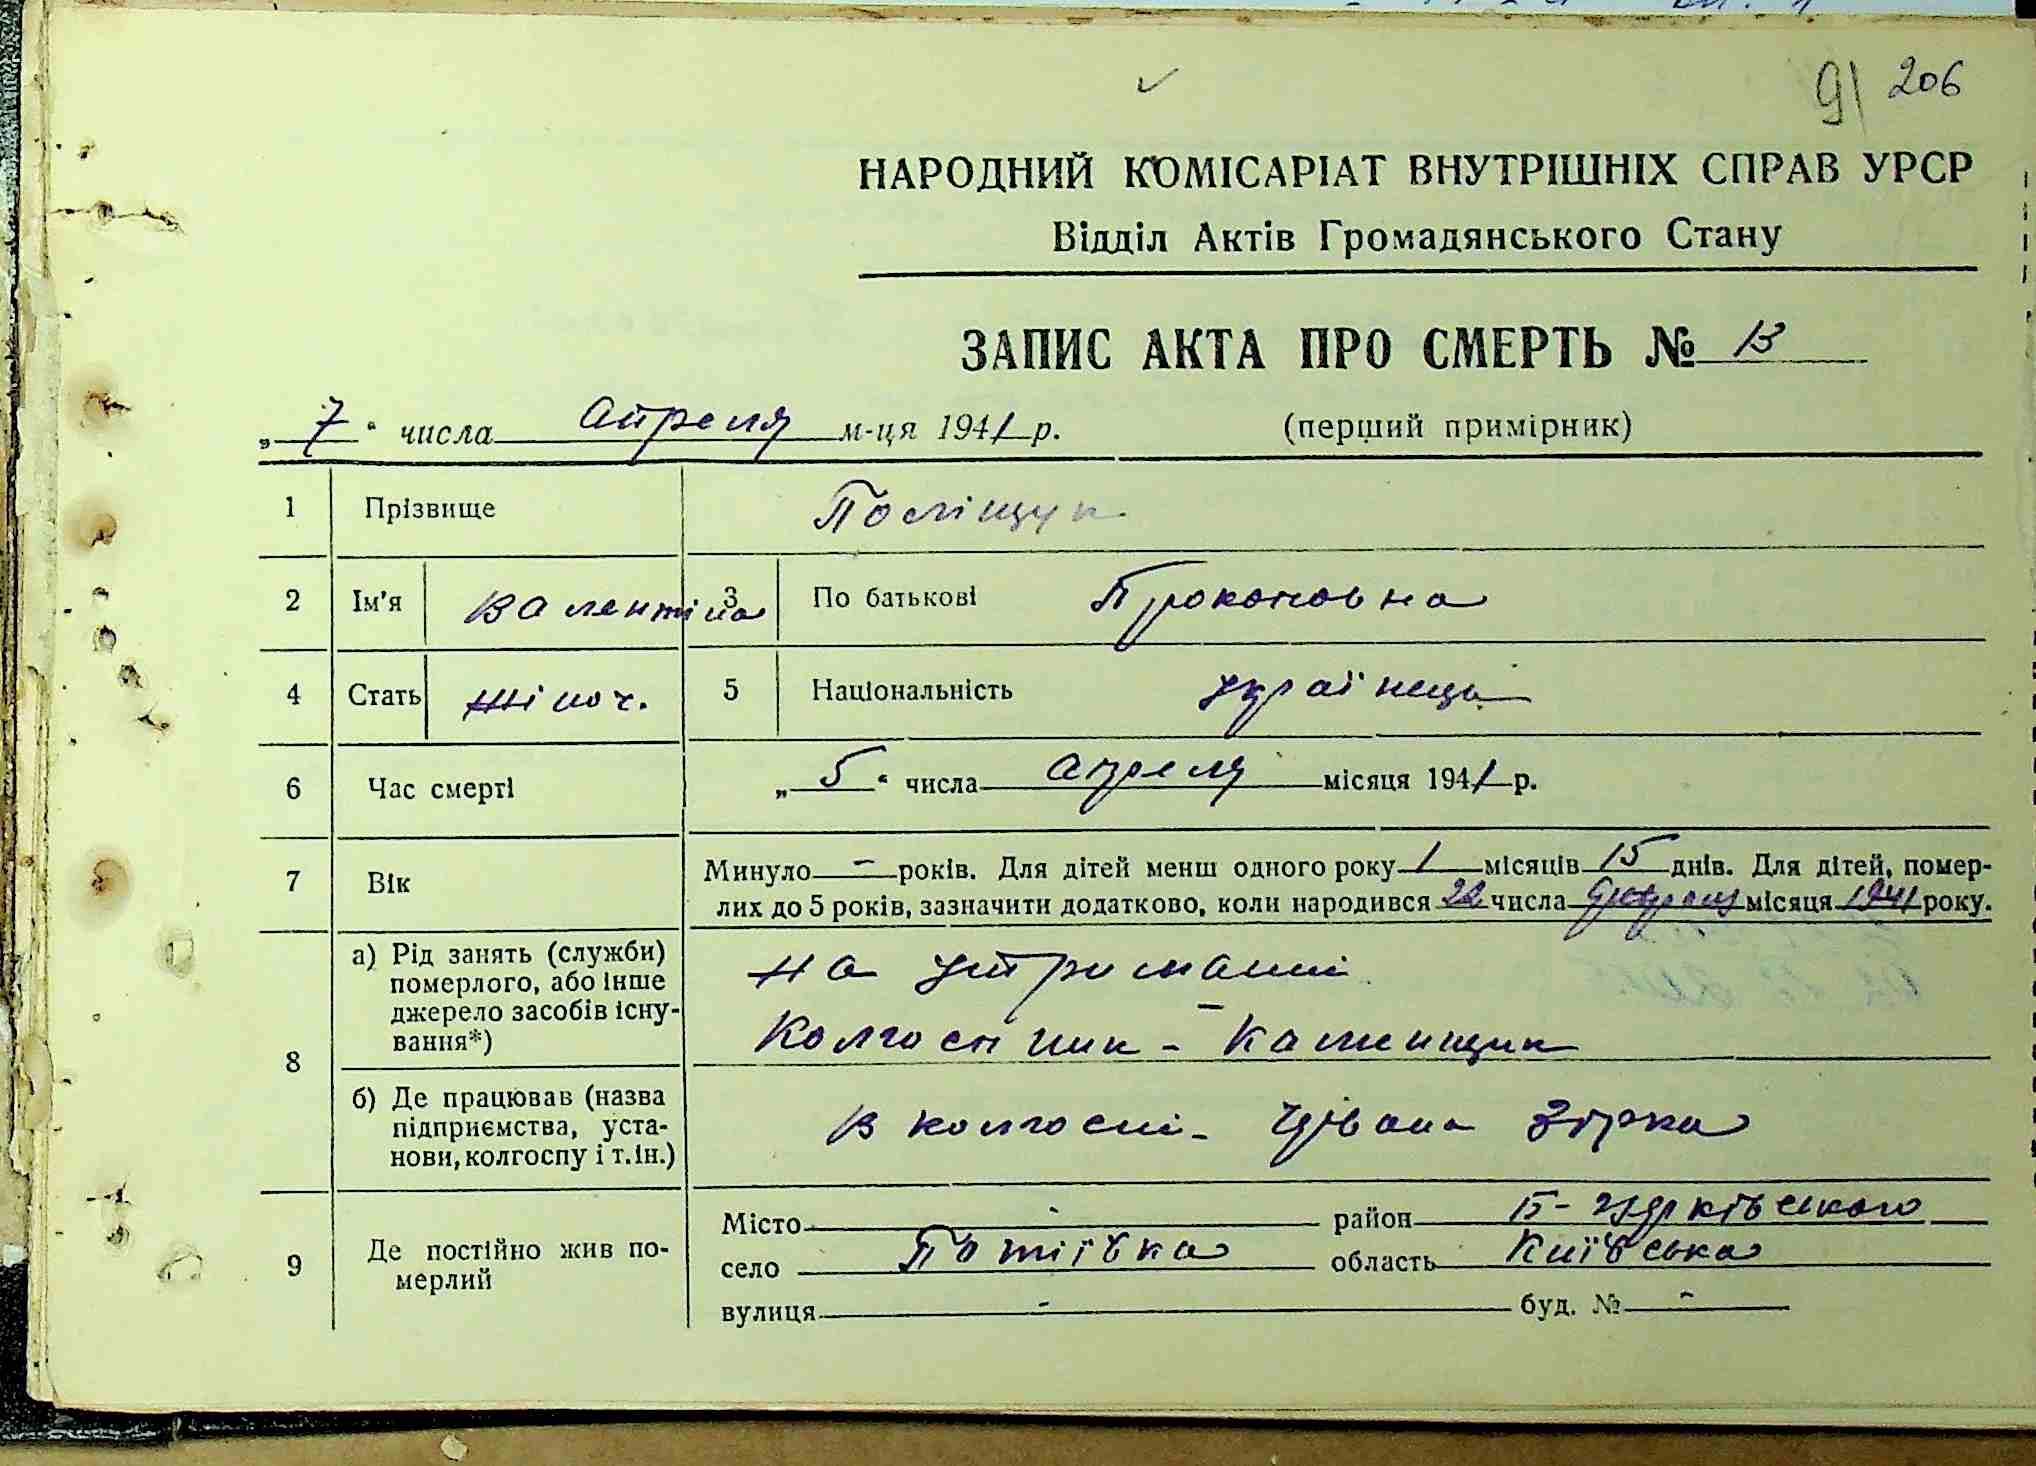 91 206
НАРОДНИЙ КОМІСАРІАТ ВНУТРІШНІХ СПРАВ УРСР
Відділ Актів Громадянського Стану
ЗАПИС АКТА ПРО СМЕРТЬ № 13
„ 7 “ числа апреля м-ця 1941 р. (перший примірник)
1 Прізвище Поліщук
2 Ім'я Валентіна 3 По батькові Проконовна
4 Стать жіноч. 5 Національність українець
6 Час смерті „ 5 “ числа апреля місяця 1941 р.
7 Вік Минуло - років. Для дітей менш одного року 1 місяців 15 днів. Для дітей, помер-
лих до 5 років, зазначити додатково, коли народився 22 числа февраля місяця 1941 року.
8 а) Рід занять (служби) померлого, або інше джерело засобів існу-вання*) на утриманні
Колгоспник - Каменщик
б) Де працював (назва підприємства, уста-нови, колгоспу і т.ін.) в колгоспі - Зірка
9 Де постійно жив по-мерлий
Місто - район Б-Церківського
село Потіївка область Київська
вулиця - буд. № -